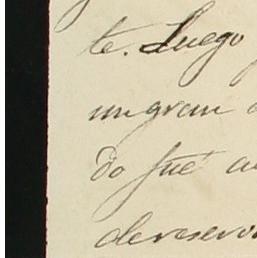 te. Luego
un gran
do fué
de reserv